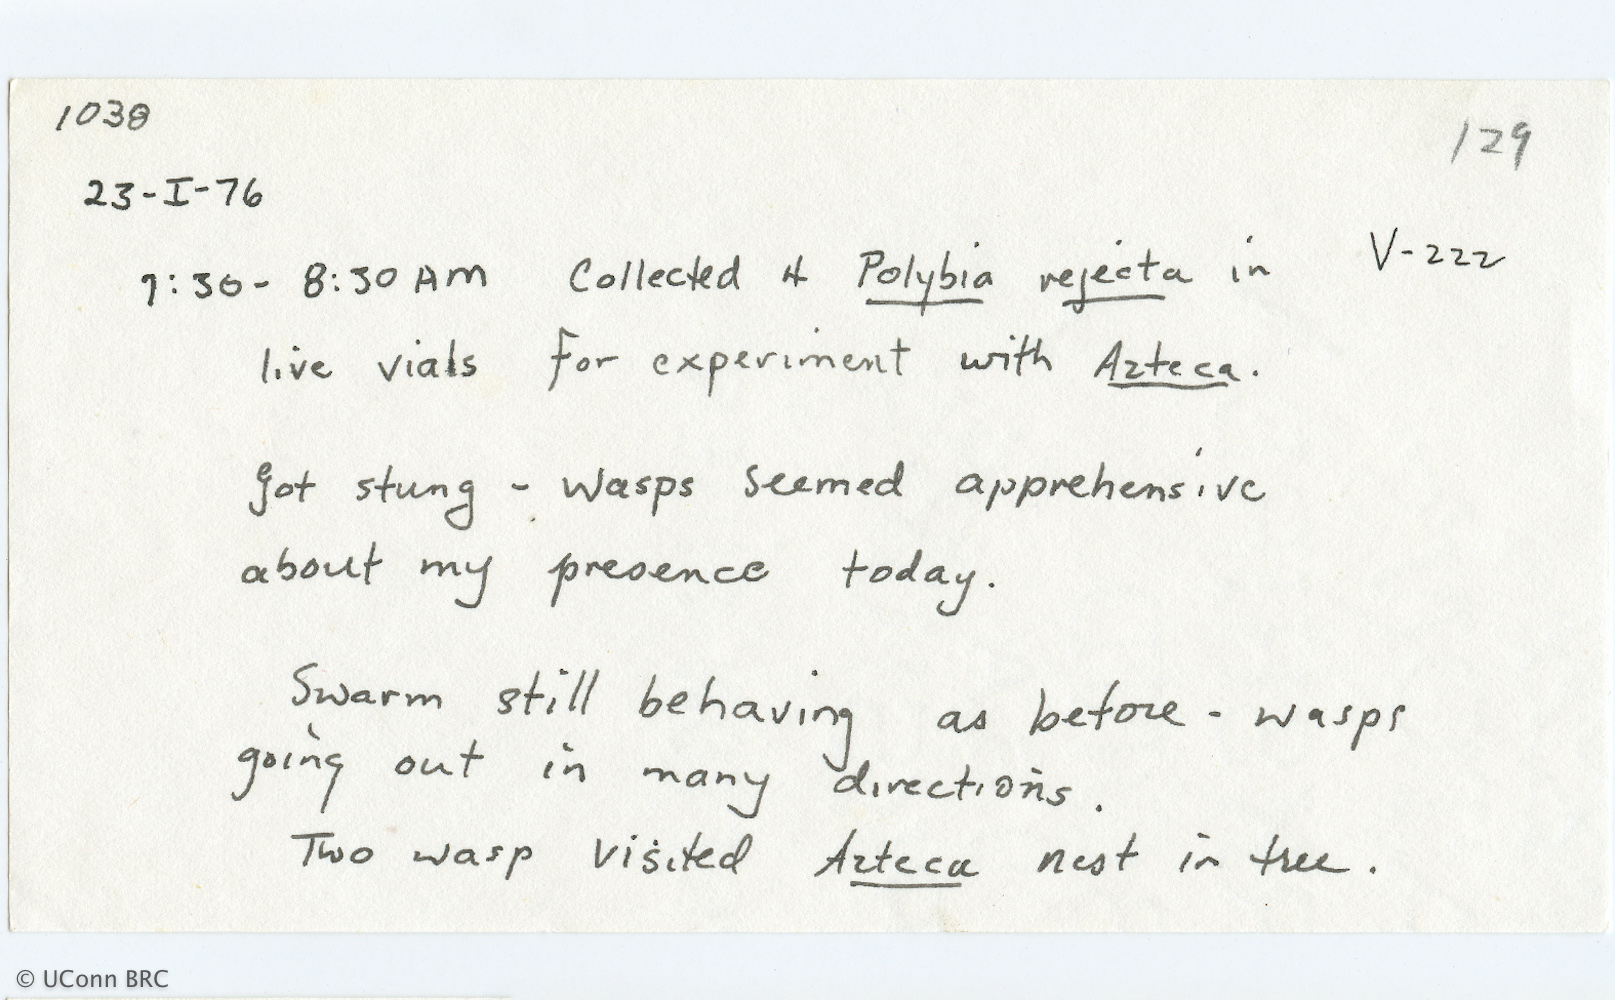 1038
129
23-I-76
7:30- 8:30 AM Collected 4 Polybia rejecta in V-222
live vials for experiment with Azteca.
got stung - wasps seemed apprehensive
about my presence today.
Swarm still behaving as before - wasps
going out in many directions.
Two wasp visited Azteca nest in tree.
© UConn BRC